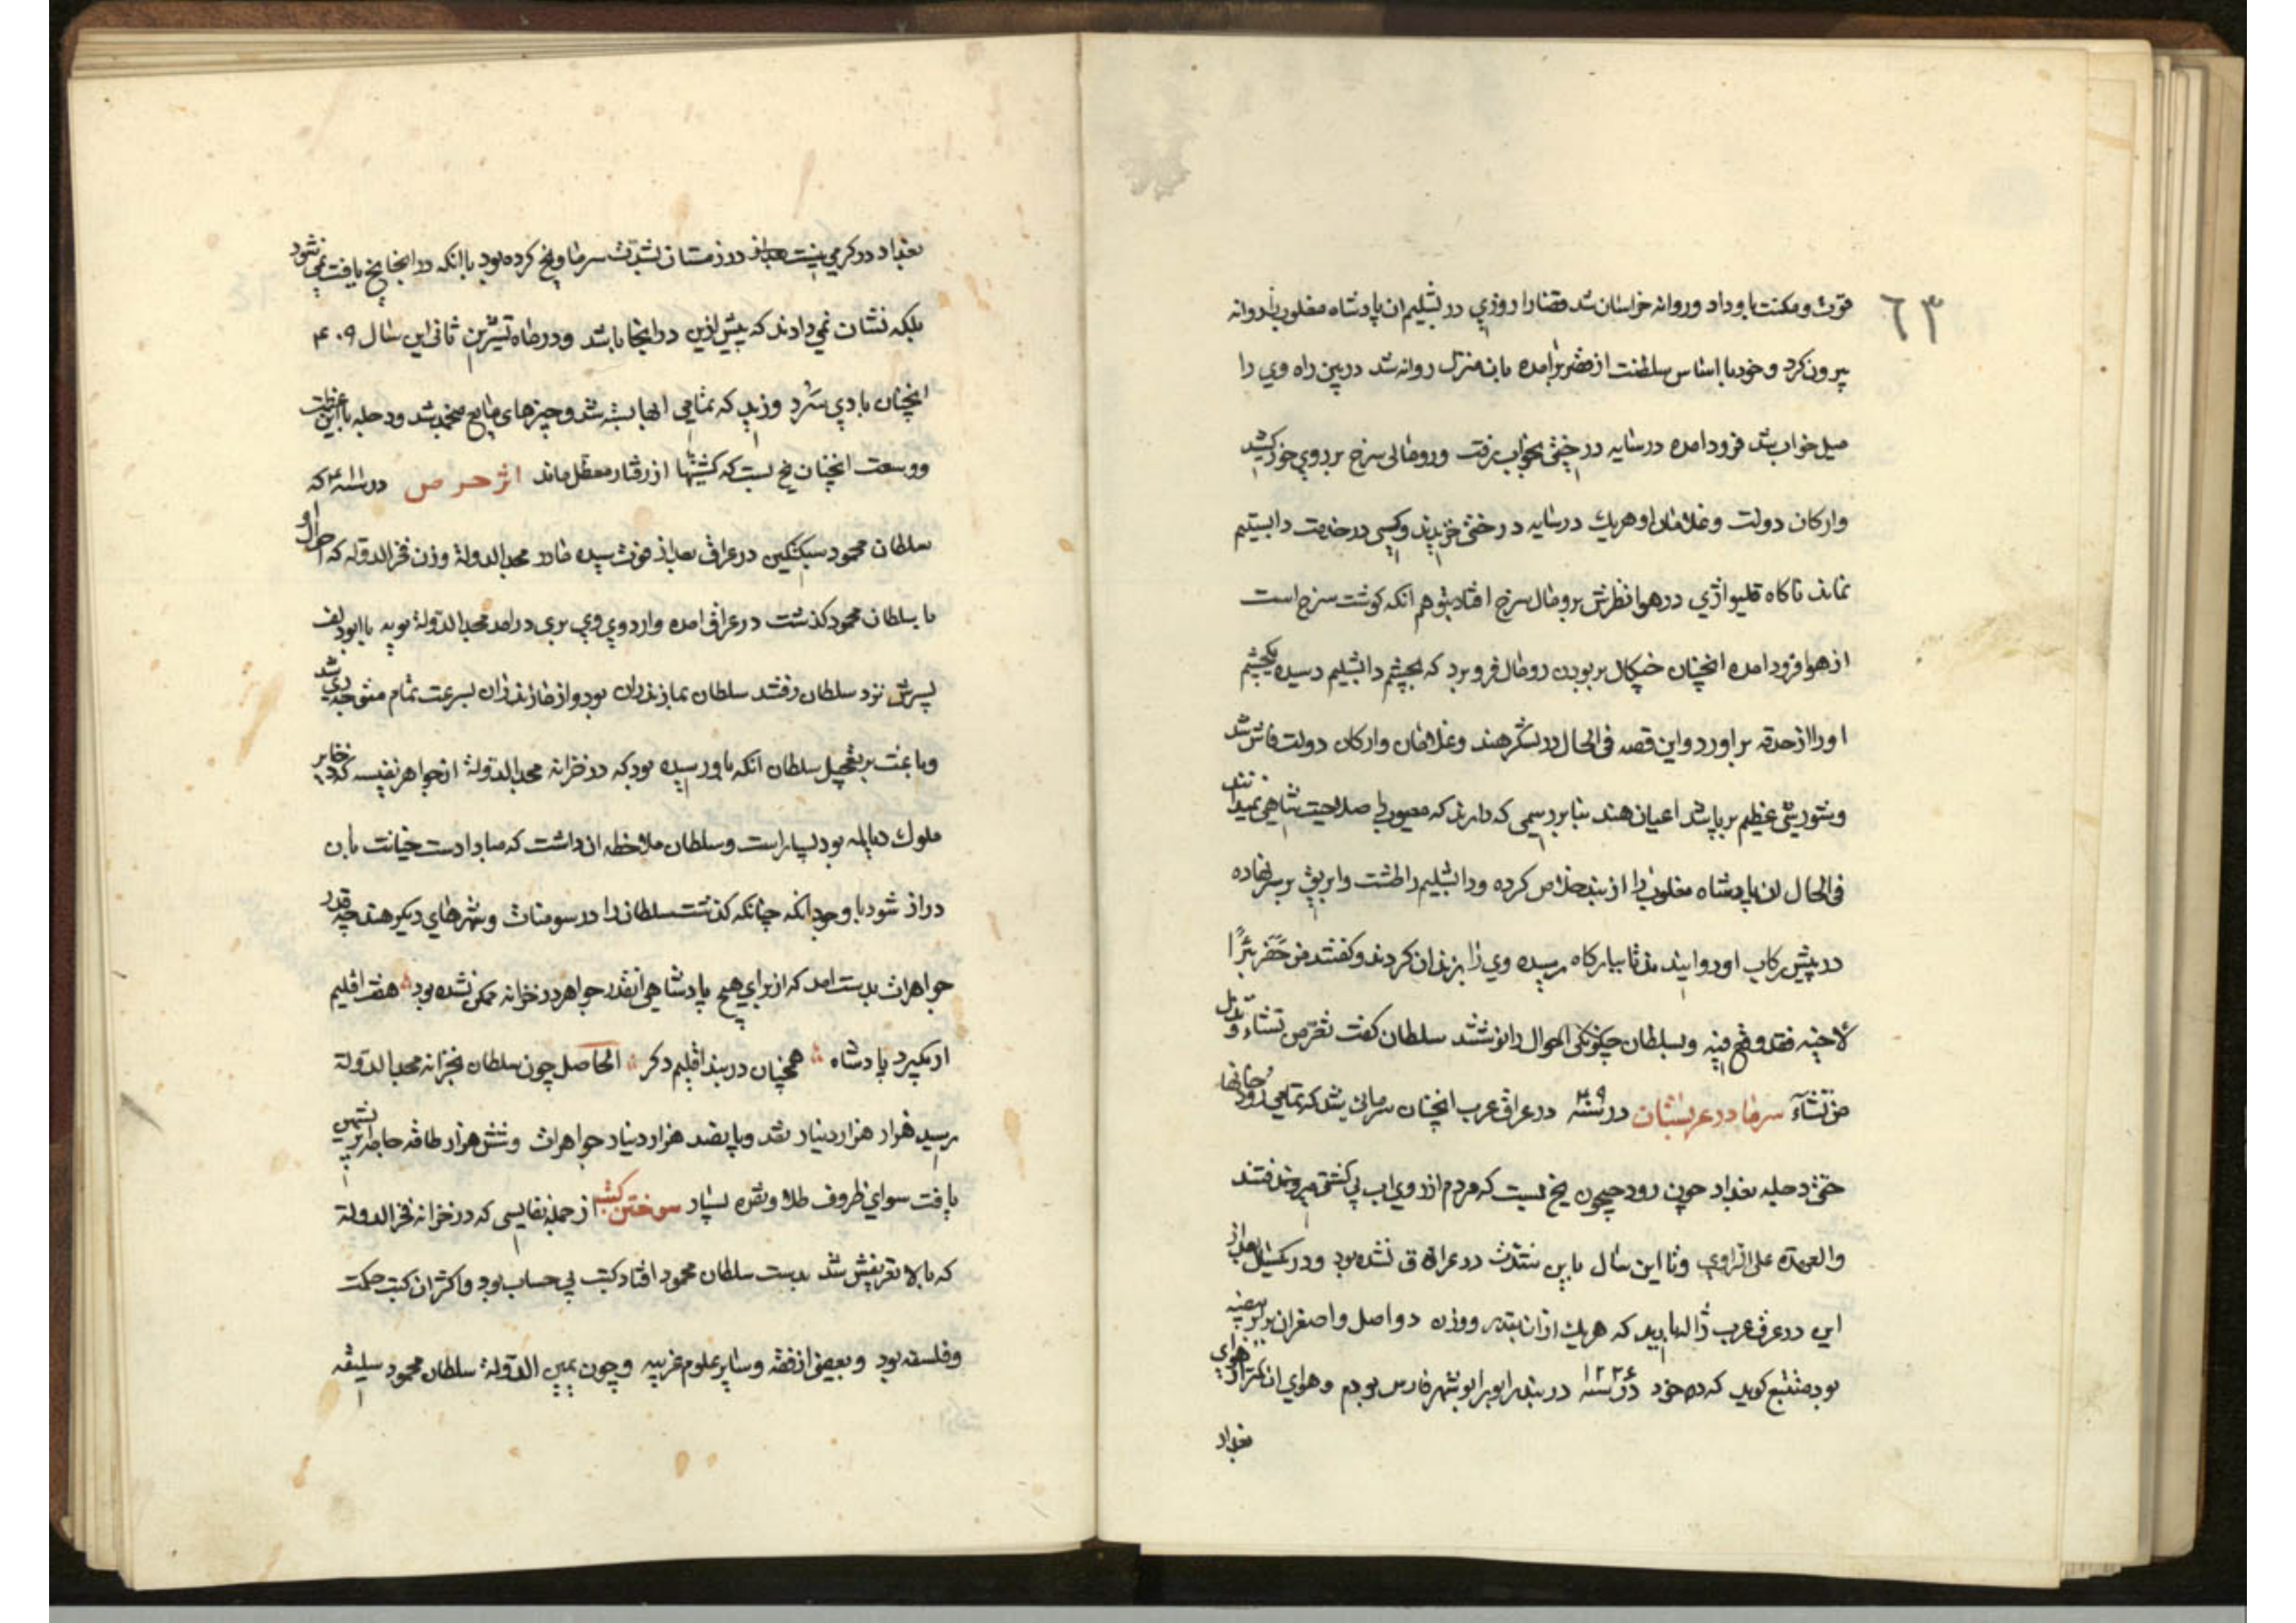 ٦٣
قوت و مكنت باو داد و روانه خراسان شد قضارا روزي دابشليم ان پادشاه مغلوب را روانه
بيرون كرد و خود با اساس سلطنت از مصر برامده بان منزل روانه شد در بين راه وي را
ميل خواب شد فرود امده در سايه درختي بخواب رفت و رومالي سرخ بر روي خود كشيد
و اركان دولت و غلامان او هريك در سايه درختي خزيدند و كسي در خدمت دابشليم
نماند ناكاه قليواژي در هوا نظرش برومال سرخ افتاد بتوهم انكه كوشت سرخ است
از هوا فرود امده انچنان چنكال بر بودن رومال فرو برد كه بچشم دابشليم رسيده يكچشم
او را از حدقه براورد و اين قصه في الحال در لشكر هند و غلامان و اركان دولت فاش شد
و شورشي عظيم بر پا شد اعيان هند بنا بر رسمي كه دارند كه معيوب را صلاحيت شاهي نميدانند
في الحال ان پادشاه مغلوب را از بند خلاص كرده و دابشليم را طشت و ابريق بر سر نهاده
در پيش ركاب او دوانيدند تا ببارگاه رسيده وي را بزندان كردند و كفتند من حَفَر بئرًا
لاخيه فقد وقع فيه و بسلطان چكونكي احوال را نوشتند سلطان كفت تعز من تشاء و تذل
من تشاء سرما در عربستان در سنه در عراق عرب انچنان سرمائي شد كه تمامي رودخانها
حتى دجله بغداد چون رود جيحون يخ بست كه مردم از روي اب بي كشتي ميرفتند
والعهدة على الراوي و تا اين سال باين شدت در عراق نشده بود و در يكسال بعد از
اين در عرق عرب ژالها باريد كه هريك از ان بقدر و وزن دو اصل و اصغران برابر بيضه
بود متتبع كويد كه من خود در سنه ١٢٢٤ در بندر ابوبرا بوشهر فارس بودم و هواي ان كمتر از هواي
بغداد
بغداد در كرمي نيست در زمستان بشدت سرما و يخ كرده بود با انكه در انجا يخ يافت نمي شود
بلكه نشان نمي دادند كه پيش ازين در انجا باشد و در ماه تشرين ثاني اين سال ۴۰۹
انچنان بادي سَرد وزيد كه تمامي ابها بسته شد و چيزهاي مايع منجمد شد و دجله با اين عظمت
و وسعت انچنان يخ بست كه كشتيها از رفتار معطل ماند اثر حرص در سنه كه
سلطان محمود سبكتكين در عراق بعد از فوت سيده مادر مجد الدولة و زن فخر الدوله كه احوال او
با سلطان محمود كذشت در عراق امده و اردوي وي بري درامد مجد الدولة بويه با ابو دلف
پسرش نزد سلطان رفتند سلطان بمازندران بود و از مازندران بسرعت تمام متوجه ري شد
و باعث بر تعجيل سلطان انكه باو رسيده بود كه در خزانه مجد الدولة از جواهر نفيسه كه ذخاير
ملوك ديالمه بود بسيار است و سلطان ملاحظه ان داشت كه مبادا دست خيانت بان
دراز شود با وجود انكه چنانكه كذشت سلطان را در سومنات و شهرهاي ديكر هند چه قدر
جواهرات بدست امد كه از براي هيچ پادشاهي انقدر جواهر در خزانه ممكن نشده بود هفت اقليم
ار بگيرد پادشاه همچنان در بند اقليم دكر الحاصل چون سلطان بخزانه مجد الدولة
رسيد هزار هزار دينار نقد و پانصد هزار دينار جواهرات و شش هزار طاقه جامه ابريشمين
يافت سواي ظروف طلا و نقره بسيار سوختن كتب از جمله نفايسي كه در خزانه فخر الدولة
كه بالا تعريفش شد بدست سلطان محمود افتاد كتب بي حساب بود و اكثر ان كتب حكمت
و فلسفه بود و بعضي از فقه و ساير علوم غريبه و چون يمين الدولة سلطان محمود سليقه